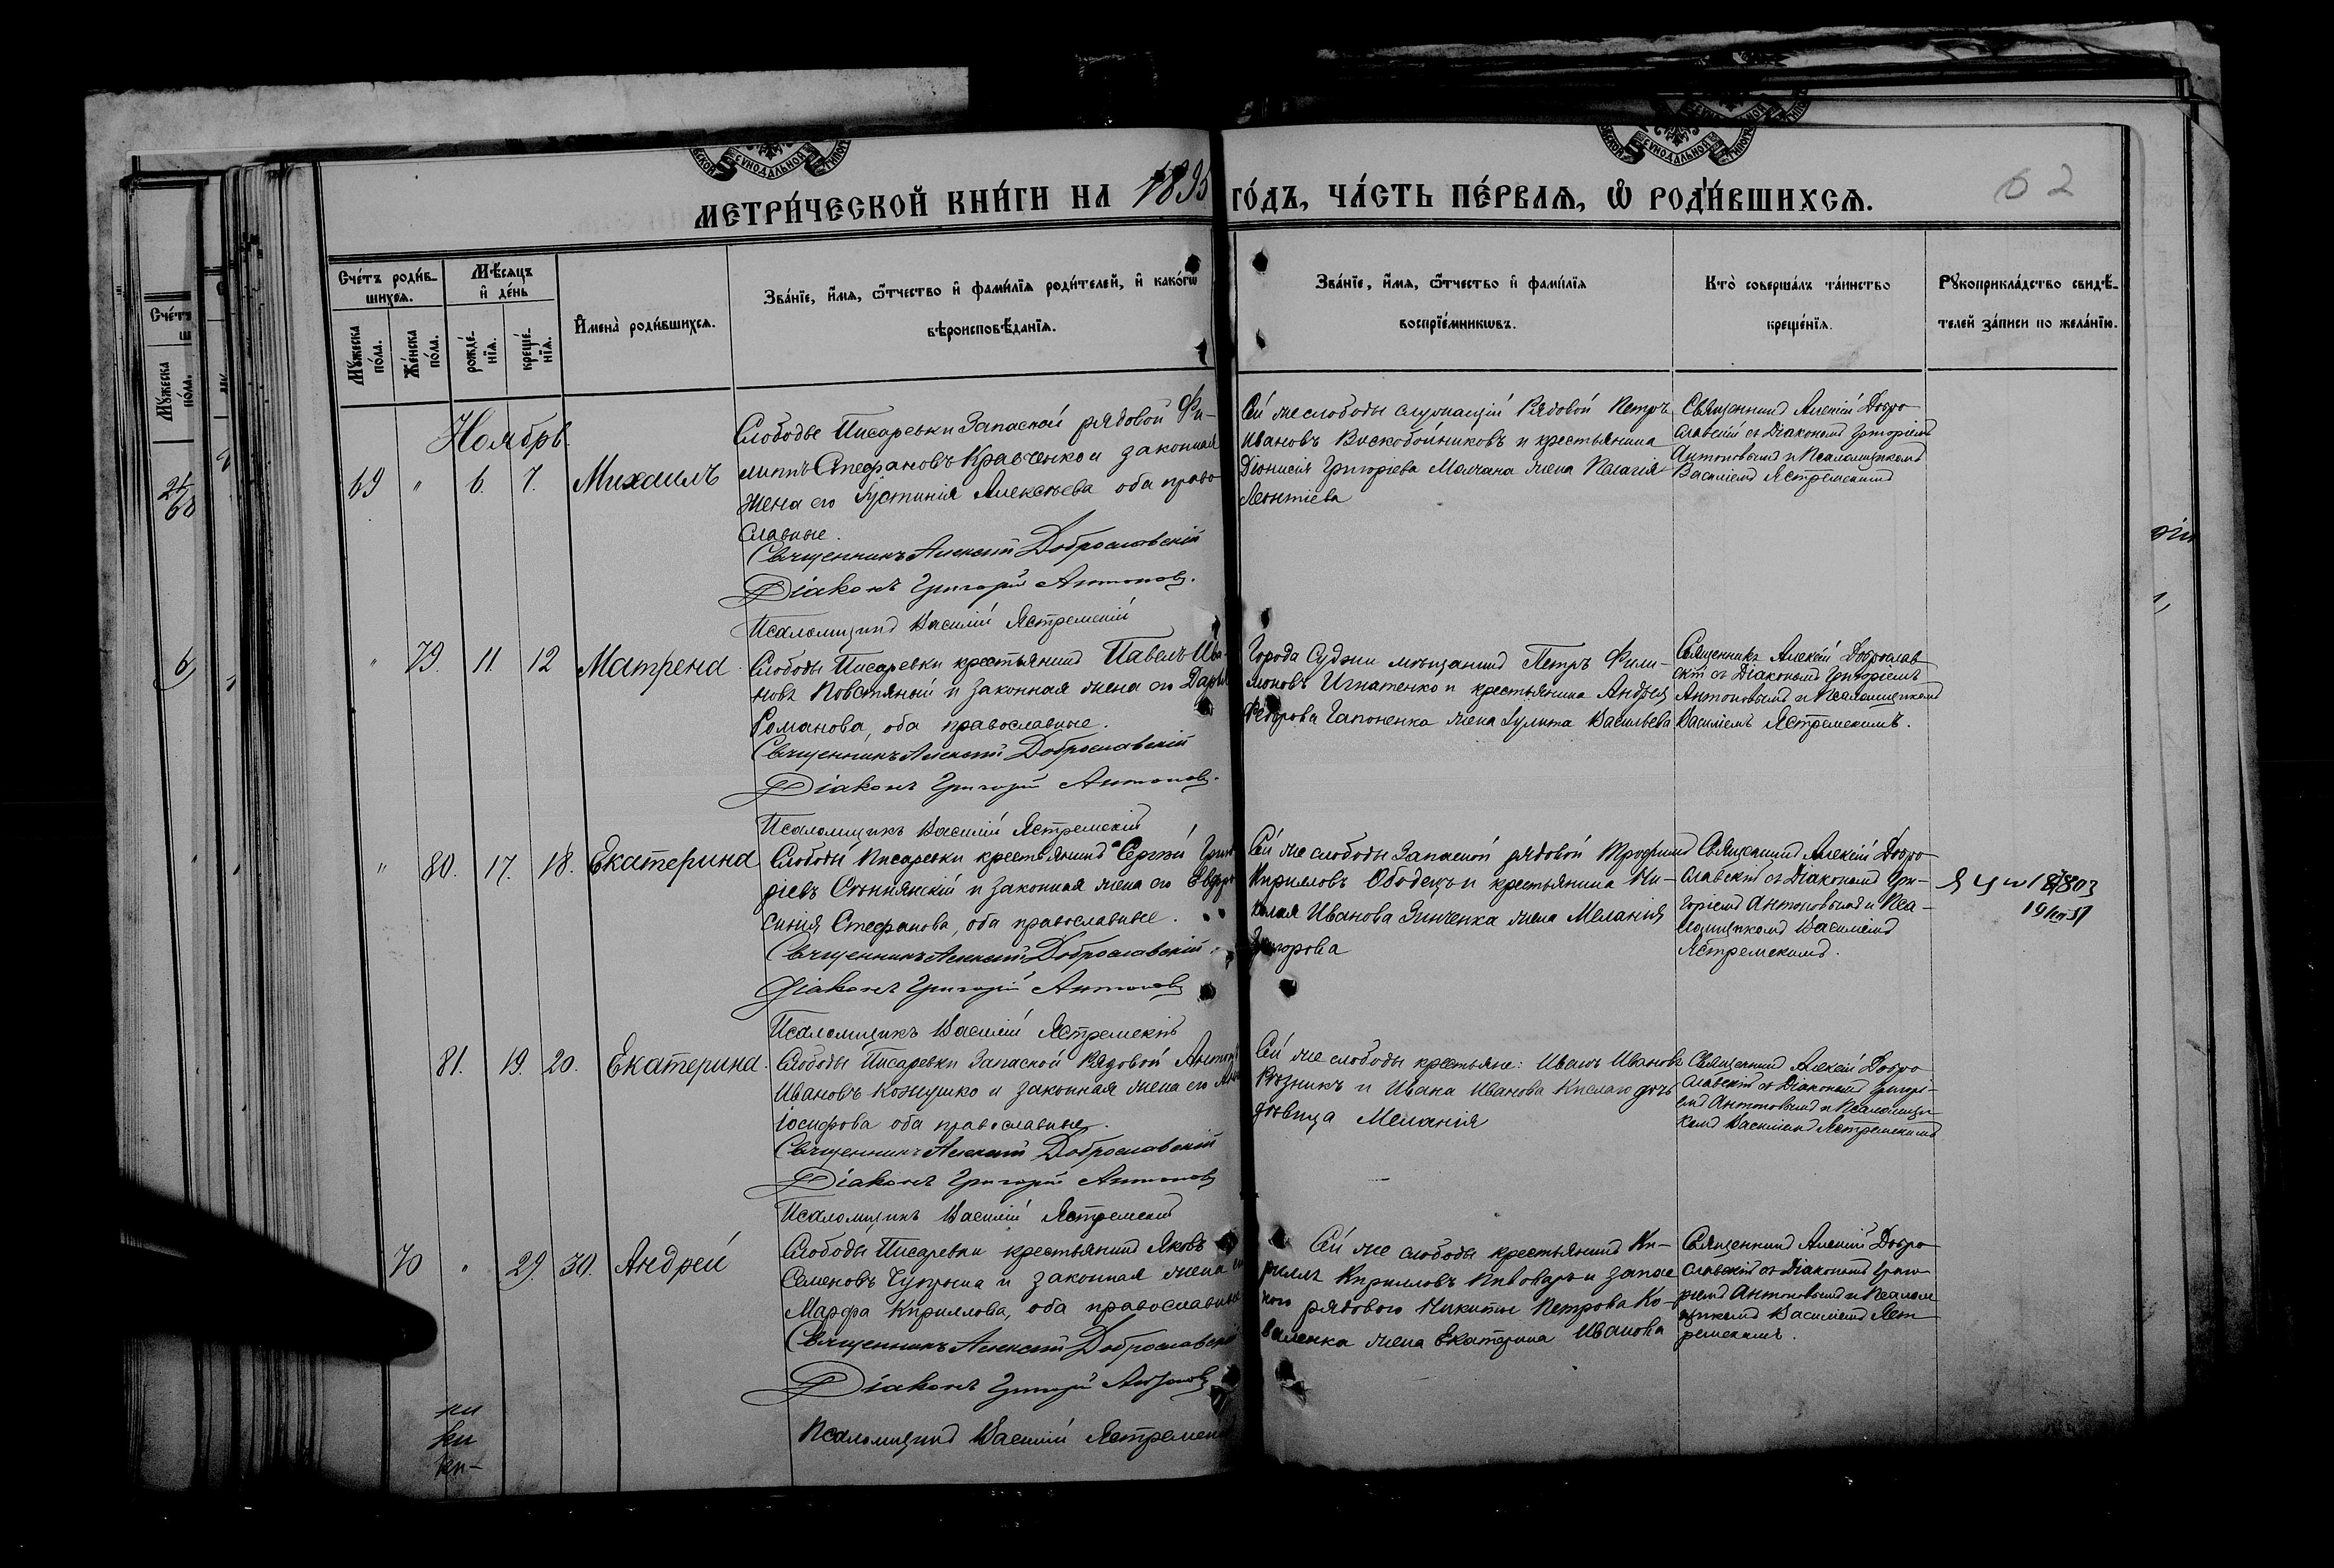 МЕТРИ́ЧЕСКОЙ КНИ́ГИ НА 1895 ГО́ДЪ, ЧА́СТЬ ПЕ́РВАѦ, Ѽ РОДИ́ВШИХСѦ.
62
Сче́тъ роди́в-
шихсѧ.
Мѣ́сѧцъ
и҆ де́нь
Мꙋ́жеска
по́ла.
Же́нска
по́ла.
рожде́-
нїѧ.
креще́-
нїѧ.
И҆мена̀ роди́вшихсѧ.
Зва́нїе, и҆́мѧ, ѻ҆́тчество и҆ фами́лїѧ роди́телей, и҆ како́гѡ
вѣроисповѣ́данїѧ.
Зва́нїе, и҆́мѧ, ѻ҆́тчество и҆ фами́лїѧ
воспрїе́мникѡвъ.
Кто̀ соверша́лъ та́инство
креще́нїѧ.
Рꙋкоприкла́дство свидѣ́-
телей за́писи по жела́нїю.
Ноябрь.
69 " 6. 7. Михаилъ
Слободы Писаревки Запасной рядовой Фи-
липпъ Стефановъ Кравченко и законная
жена его Іустинія Алексѣева оба право
славные.
Священникъ Алексій Доброславскій
Діаконъ Григорій Антоновъ.
Псаломщикъ Василій Ястремскій
Сей же слободы служащій Рядовой Петръ
Ивановъ Воскобойниковъ и крестьянина
Діонисія Григоріева Молчана жена Пелагія
Леонтіева
Священникъ Алексій Добро
славскій съ Діакономъ Григоріемъ
Антоновымъ и Псаломщикомъ
Василіемъ Ястремскимъ
" 79. 11. 12 Матрена
Слободы Писаревки крестьянинъ Павелъ Ива-
новъ Повстяный и законная жена его Дарья
Романова, оба православные.
Священникъ Алексій Доброславскій
Діаконъ Григорій Антоновъ.
Псаломщикъ Василій Ястремскій
Города Суджи мѣщанинъ Петръ Фили-
моновъ Игнатенко и крестьянина Андрея
Федорова Гапоненка жена Іулита Васильева
Священникъ Алексій Доброслав
скій съ Діакономъ Григоріемъ
Антоновымъ и Псаломщикомъ
Василіемъ Ястремскимъ.
" 80. 17. 18. Екатерина
Слободы Писаревки крестьянинъ Сергій Григо
ріевъ и законная жена его Евфро
синія Стефанова, оба православные.
Священникъ Алексій Доброславскій
Діаконъ Григорій Антоновъ
Псаломщикъ Василій Ястремскій
Сей же слободы Запасной рядовой Трофимъ
Кирилловъ Ободецъ и крестьянина Ни-
колая Иванова Зинченка жена Меланія
Григорова
Священникъ Алексій Добро
славскій съ Діакономъ Гри-
горіемъ Антоновымъ и Пса-
ломщикомъ Василіемъ
Ястремскимъ.
81. 19. 20. Екатерина.
Слободы Писаревки Запасной Рядовой Антонъ
Ивановъ Кожушко и законная жена его
Іосифова оба православные.
Священникъ Алексій Доброславскій
Діаконъ Григорій Антоновъ
Псаломщикъ Василій Ястремскій
Сей же слободы крестьяне: Иванъ Ивановъ
Рѣзникъ и Ивана Иванова Кислаго дочь
дѣвица Меланія
Священникъ Алексій Добро
славскій съ Діакономъ Григорі-
емъ Антоновымъ и Псаломщи-
комъ Василіемъ Ястремскимъ
70 " 29. 30. Андрей
Слободы Писаревки крестьянинъ Яковъ
Семеновъ Чупрына и законная жена его
Марфа Кириллова, оба православные
Священникъ Алексій Доброславскій
Діаконъ Григорій Антоновъ
Псаломщикъ Василій Ястремскій
Сей же слободы крестьянинъ Ки-
риллъ Кирилловъ Пивоваръ и запас
ного рядового Никиты Петрова Ко-
валенка жена Екатерина Иванова
Священникъ Алексій Добро
славскій съ Діакономъ Григо
ріемъ Антоновымъ и Псалом
щикомъ Василіемъ Яст
ремскимъ.